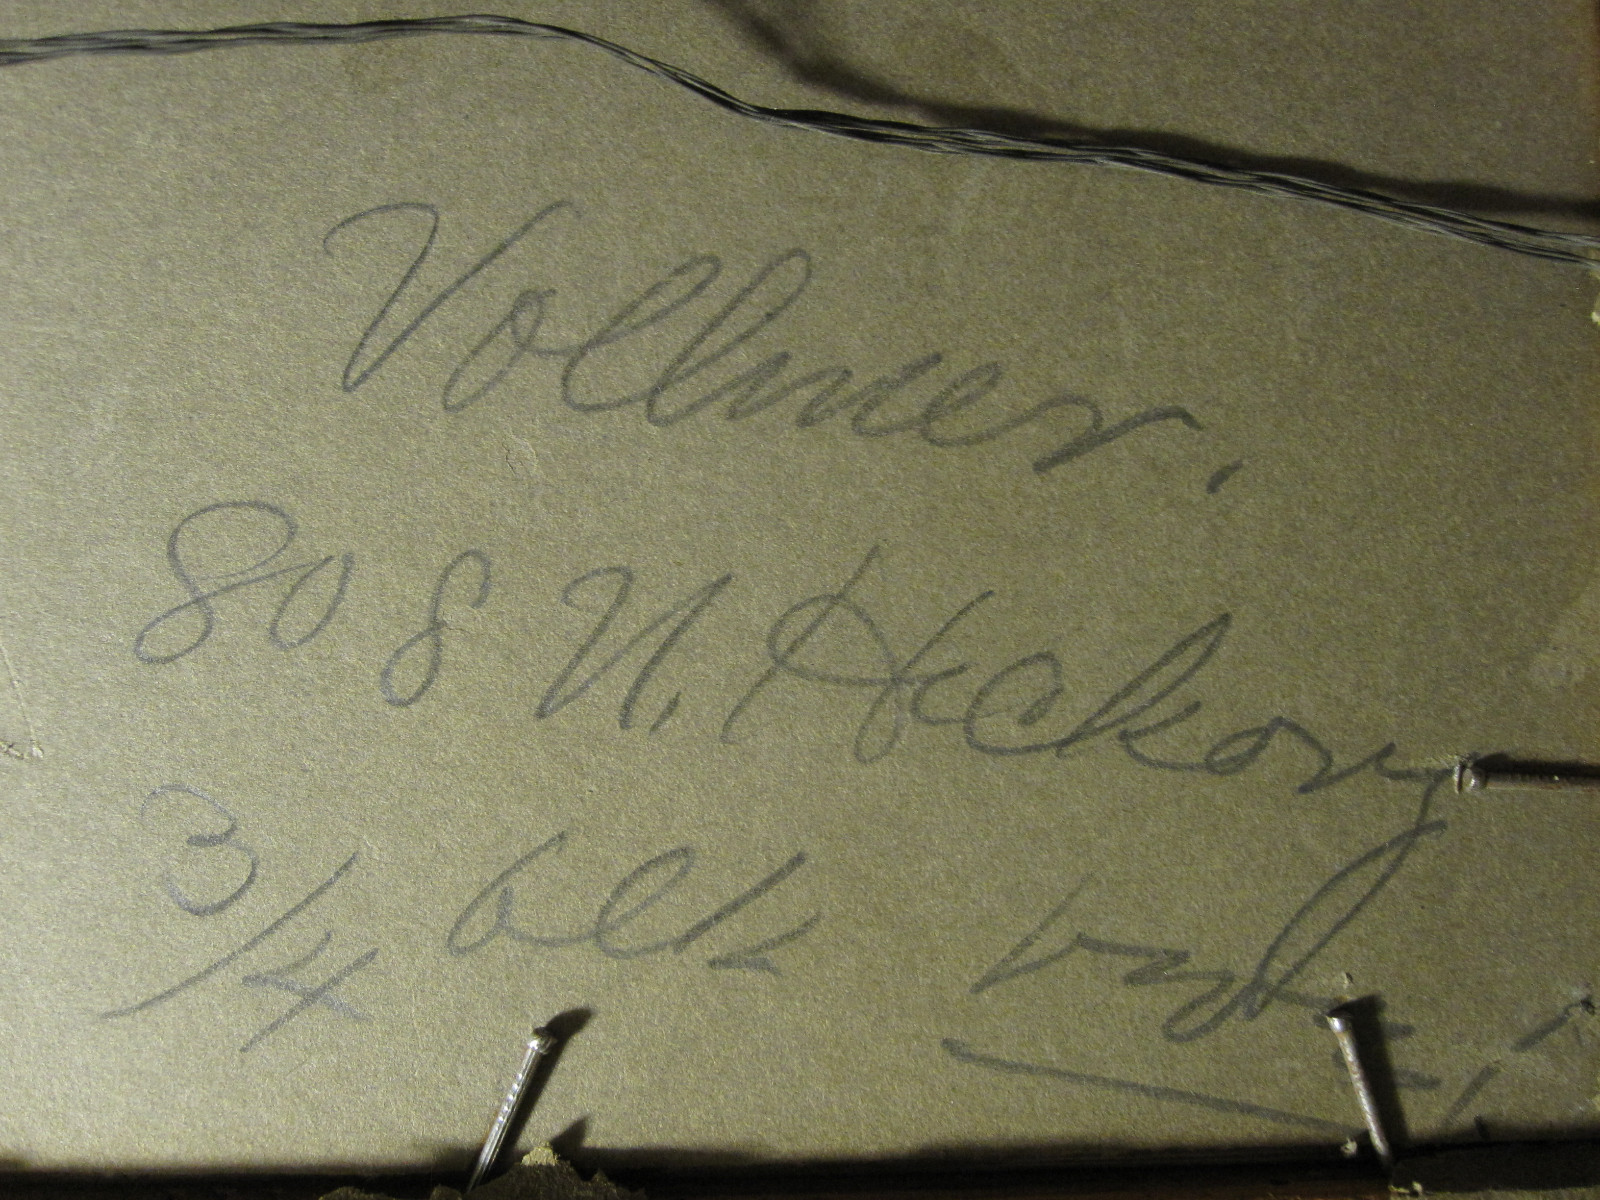 Vollmer.
808 N. Hickory
3/4 blk